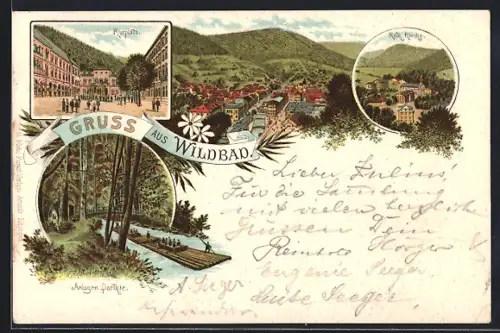 Kurplatz.
Kath. Kirche.
GRUSS
AUS
WILDBAD.
Anlagen Partie.
Lieber Julius,
Für die Sammlung
mit vielen herzlichen
Grüssen Dein
Reinhold
Eugenie Seeger
A. Seeger
Luise Seeger